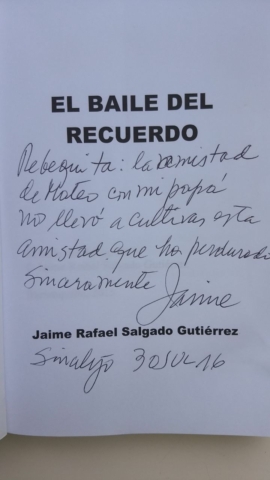 EL BAILE DEL
RECUERDO
Rebequita: la amistad
de Mateo con mi papá
no llevó a cultivar esta
amistad que ha perdurado
Sinceramente Jaime
Jaime Rafael Salgado Gutiérrez
30 JUL 16